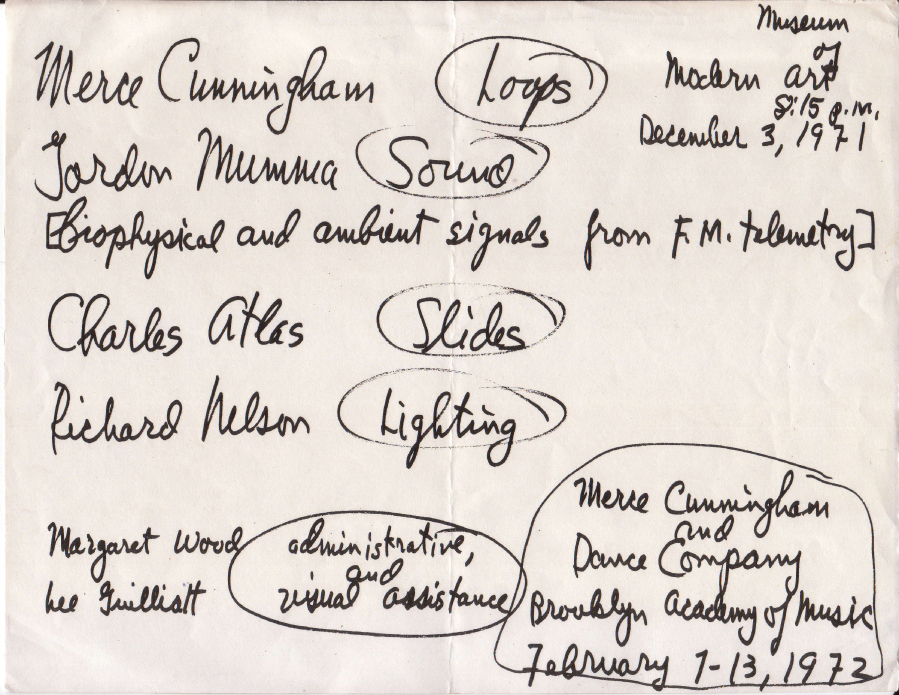 Merce Cunningham Loops
Museum
of
Modern Art
8:15 p.m.
December 3, 1971
Gordon Mumma Sound
[Biophysical and ambient signals from F.M. telemetry]
Charles Atlas Slides
Richard Nelson Lighting
Margaret Wood
Lee Guilliatt
administrative,
and
visual assistance
Merce Cunningham
and
Dance Company
Brooklyn Academy of Music
February 1-13, 1972